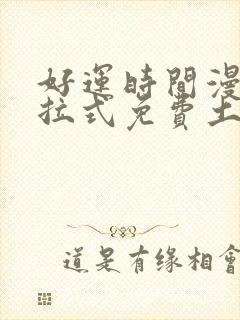 好運時間漫
拉式免費土
道是有缘相會